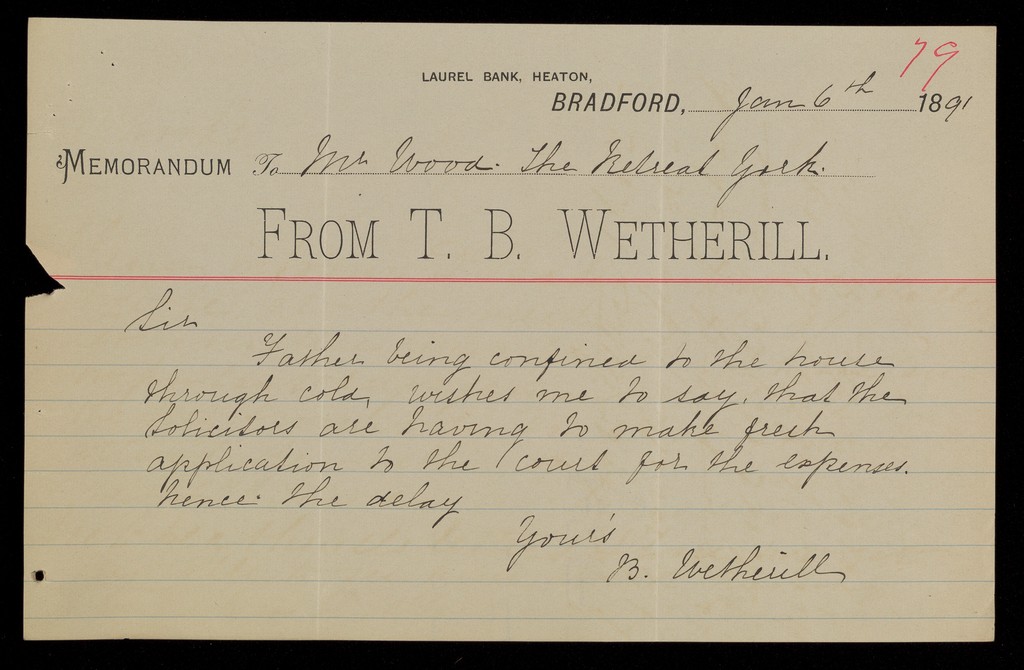 79
LAUREL BANK, HEATON,
BRADFORD, Jan 6th 1891
MEMORANDUM To Mr Wood. The Retreat York.
FROM T. B. WETHERILL.
Sir
Father being confined to the house
through cold, wishes me to say, that the
Solicitors are having to make fresh
application to the court for the expenses.
hence the delay
Your's
B. Wetherill